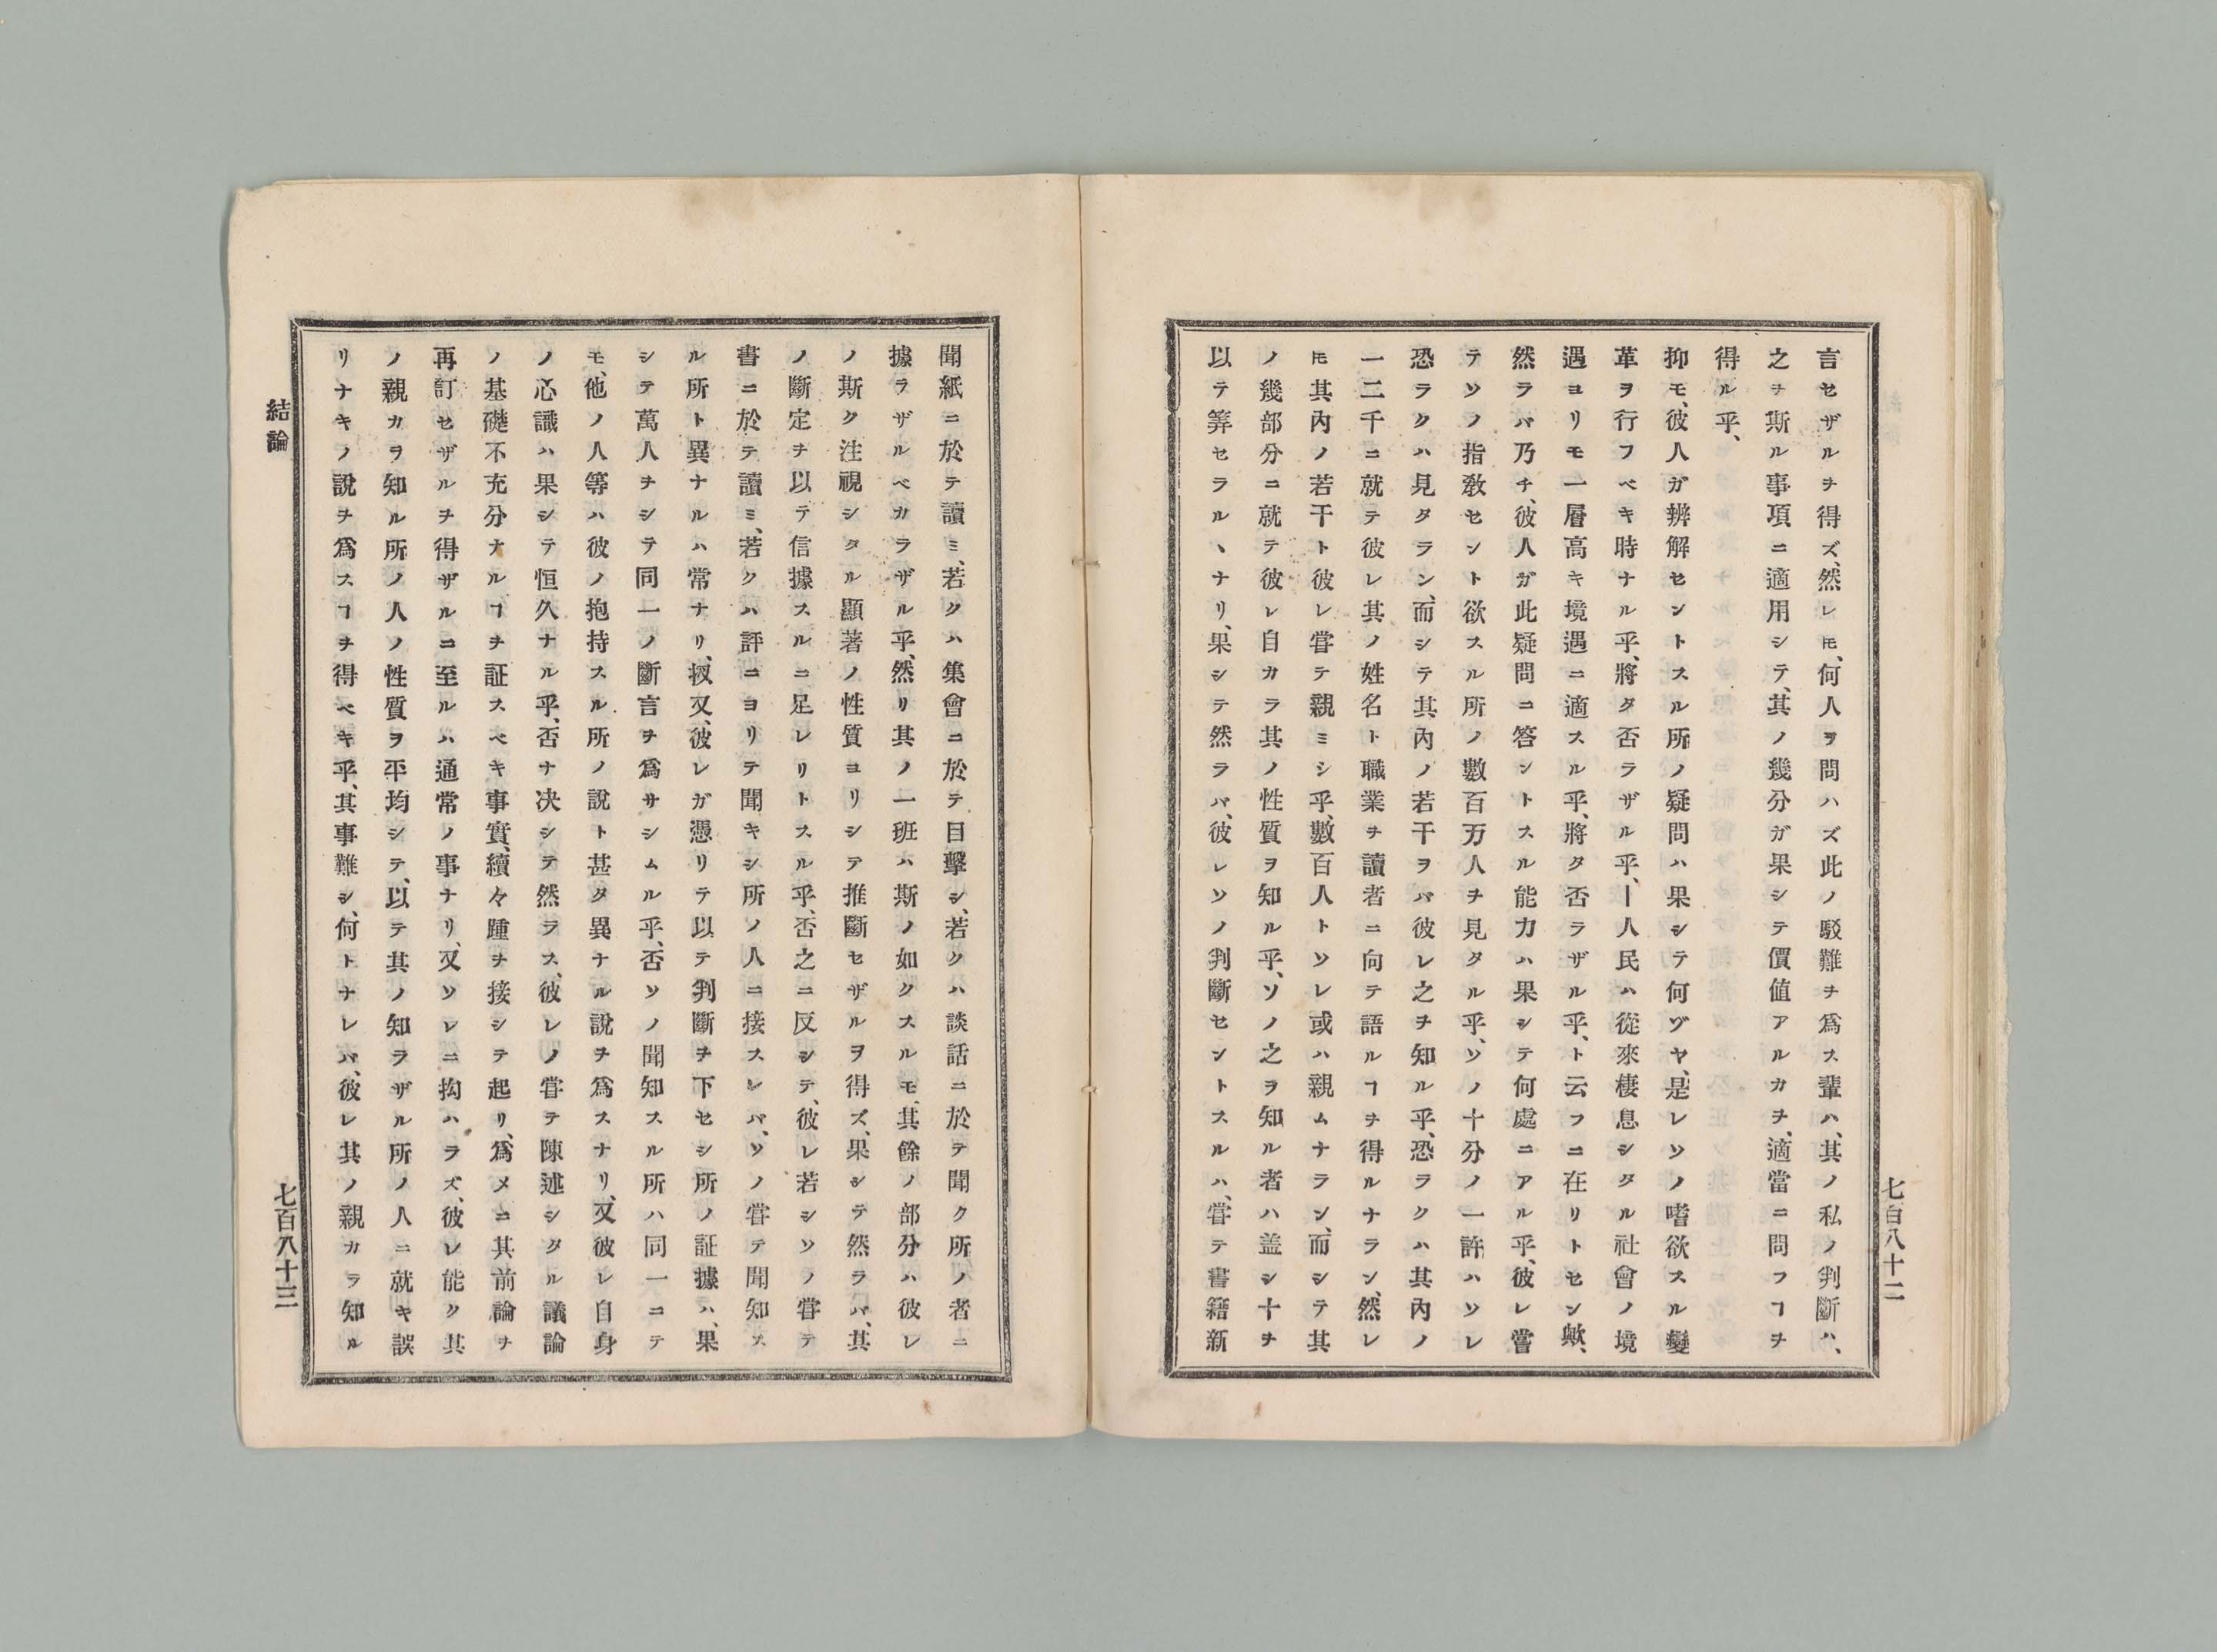 言セザルヲ得ズ、然レ𪜈、何人ヲ問ハズ此ノ駁難ヲ爲ス輩ハ、其ノ私ノ判斷ハ、
之ヲ斯ル事項ニ適用シテ、其ノ幾分ガ果シテ價値アルカヲ、適當ニ問フヿヲ
得ル乎、
抑モ、彼人ガ辨解セントスル所ノ疑問ハ果シテ何ヅヤ、是レソノ嗜欲スル變
革ヲ行フベキ時ナル乎、將タ否ラザル乎、―人民ハ從來棲息シタル社會ノ境
遇ヨリモ一層高キ境遇ニ適スル乎、將タ否ラザル乎、ト云フニ在リトセン歟、
然ラバ乃チ、彼人ガ此疑問ニ答ントスル能力ハ果シテ何處ニアル乎、彼レ嘗
テソノ指敎セント欲スル所ノ數百万人ヲ見タル乎、ソノ十分ノ一許ハソレ
恐ラクハ見タラン、而シテ其內ノ若干ヲバ彼レ之ヲ知ル乎、恐ラクハ其內ノ
一二千ニ就テ彼レ其ノ姓名ト職業ヲ讀者ニ向テ語ルヿヲ得ルナラン、然レ
𪜈其內ノ若干ト彼レ嘗テ親ミシ乎、數百人トソレ或ハ親ムナラン、而シテ其
ノ幾部分ニ就テ彼レ自カラ其ノ性質ヲ知ル乎、ソノ之ヲ知ル者ハ盖シ十ヲ
以テ筭セラルヽナリ、果シテ然ラバ、彼レソノ判斷セントスルハ、嘗テ書籍新
七百八十二
聞紙ニ於テ讀ミ、若クハ集會ニ於テ目擊シ、若クハ談話ニ於テ聞ク所ノ者ニ
據ラザルベカラザル乎、然リ其ノ一班ハ斯ノ如クスルモ、其餘ノ部分ハ彼レ
ノ斯ク注視シタル顯著ノ性質ヨリシテ推斷セザルヲ得ズ、果シテ然ラバ、其
ノ斷定ヲ以テ信據スルニ足レリトスル乎、否之ニ反シテ、彼レ若シソノ嘗テ
書ニ於テ讀ミ、若クハ評ニヨリテ聞キシ所ノ人ニ接スレバ、ソノ嘗テ聞知ス
ル所ト異ナルハ常ナリ、扠又、彼レガ憑リテ以テ判斷ヲ下セシ所ノ証據ハ、果
シテ萬人ヲシテ同一ノ斷言ヲ爲サシムル乎、否ソノ聞知スル所ハ同一ニテ
モ、他ノ人等ハ彼ノ抱持スル所ノ說ト甚タ異ナル說ヲ爲スナリ、又彼レ自身
ノ心識ハ果シテ恒久ナル乎、否ナ决シテ然ラス、彼レノ嘗テ陳述シタル議論
ノ基礎不充分ナルヿヲ証スベキ事實、續々踵ヲ接シテ起リ、爲メニ其前論ヲ
再訂セザルヲ得ザルニ至ルハ通常ノ事ナリ、又ソレニ抅ハラズ、彼レ能ク其
ノ親カヲ知ル所ノ人ノ性質ヲ平均シテ、以テ其ノ知ラザル所ノ人ニ就キ誤
リナキノ說ヲ爲スヿヲ得ベキ乎、其事難シ、何トナレバ、彼レ其ノ親カラ知ル
結論
七百八十三